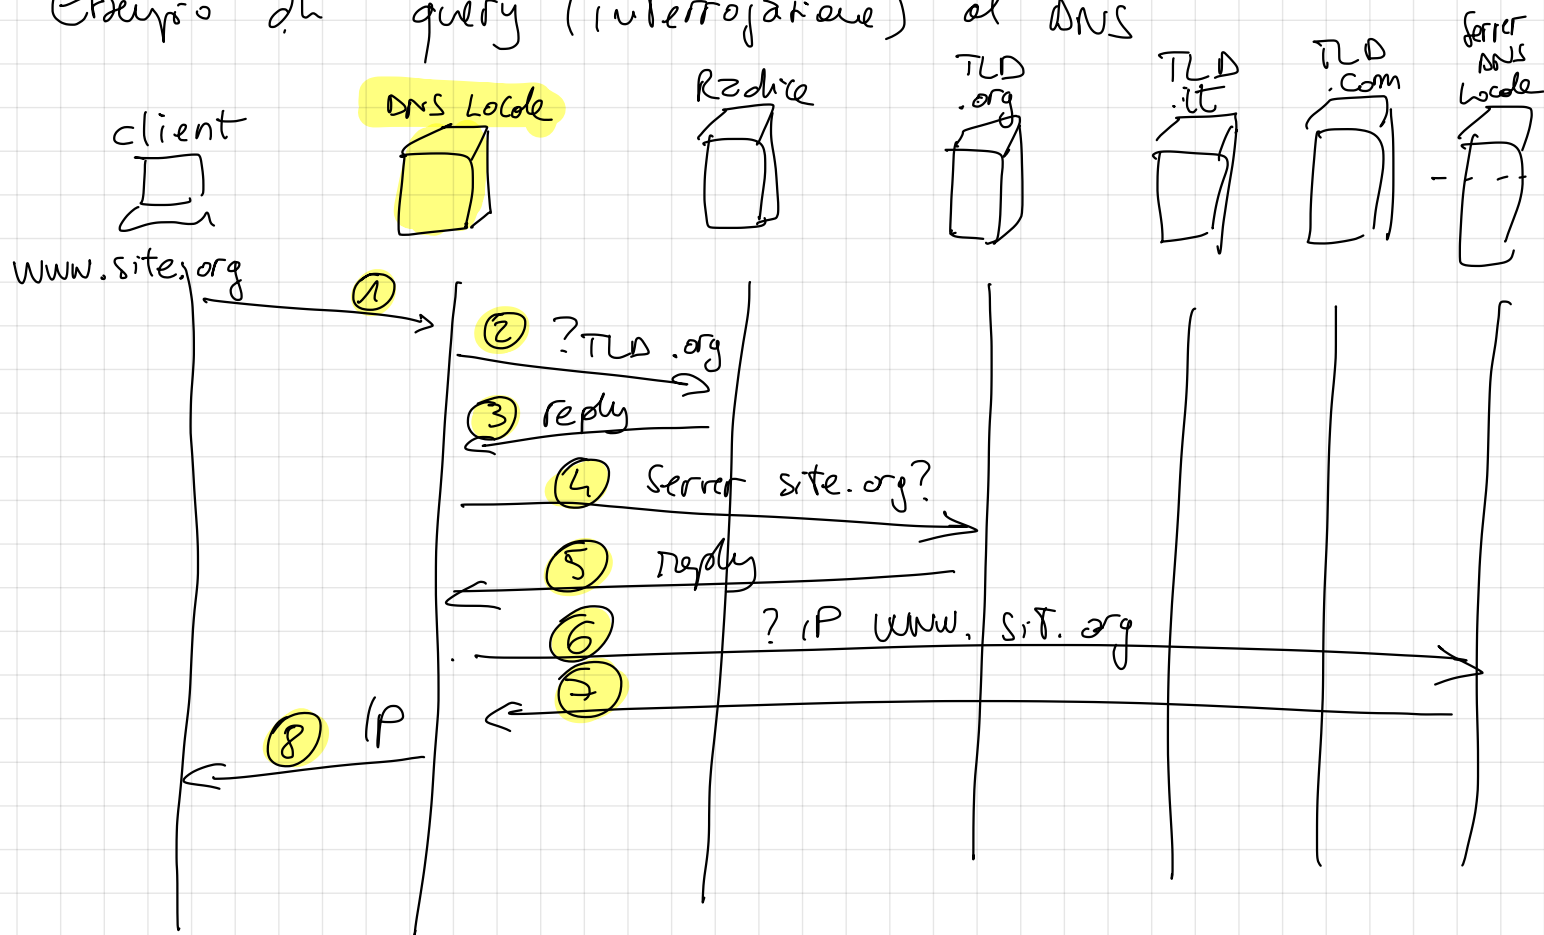 Esempio di query (interrogazione) al DNS
client
DNS Locale
Radice
TLD
.org
TLD
.it
TLD
.com
Server
DNS
Locale
www.site.org
1
2 ?TLD .org
3 reply
4 Server site.org?
5 reply
6 ? IP www. sit. org
7
8 IP